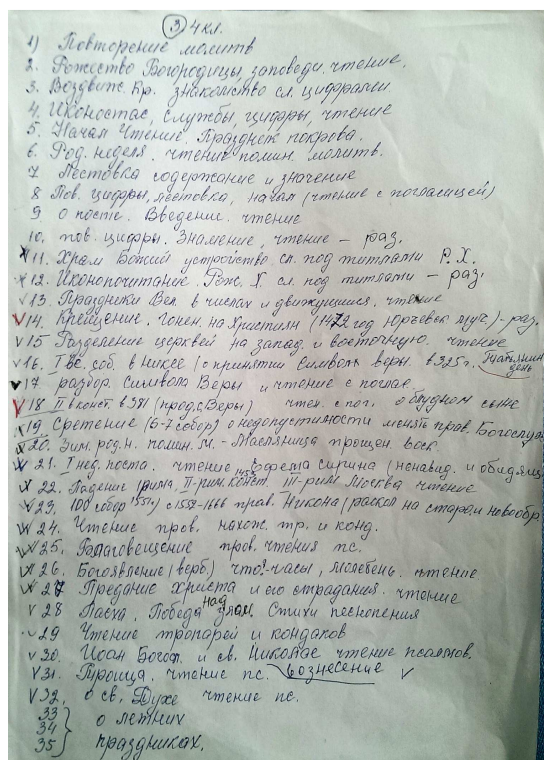 ③ 4 кл.
1) Повторение молитв
2. Рожество Богородицы, заповеди. чтение.
3. Воздвиж. Кр. знакомство сл. цифрами
4. Иконостас, службы, цифры, чтение
5. Начал Чтение. Праздник покрова.
6. Род. неделя. чтение помин. молитв.
7 Лестовка содержание и значение
8 Пов. цифры, лестовка, начал (чтение с погласицей)
9 о посте. Введение. чтение
10. пов. цифры. Знамение, чтение – раз.
11. Храм Божий устройство сл. под титлами Р. Х.
12. Иконопочитание. Рож. Х. сл. под титлами – раз.
√ 13. Праздники Вел. в числах и движущиися. чтение
√ 14. Крещение. Гонен. на Христиан (1472 год Юрьевск. муч.) - раз.
√ 15. Разделение церквей на запад. и восточную. чтение
√ 16. I вс. соб. в Никее (о принятии Символа веры. в 325 г. Татьянин день
√ 17 разбор. Символа Веры и чтение с поглас.
√ 18 II в конст. в 381 (прод. с. Веры) чтен. с пог. о блудном сыне
19 Сретение (6-7 собор) о недопустимости менять прав. Богослуж
20. Зим. род. н. помин. м. - Масляница прощен. воск.
21. I нед. поста. чтение Ефрема Сирина (ненавид. и обидящ.
22. Падение Рима, II-рим. конст. 1453 III-рим Москва чтение
√ 23. 100 собор 1551г.) с 1552-1666 прав. Никона (раскол на старом новообр.
24. Чтение пров. нахож. тр. и конд.
√ 25. Благовещение пров. чтения пс.
26. Богоявление (верб.) что?-часы, молебень. чтение
27 Предание Христа и его страдания. чтение
√ 28 Пасха. Победа над злом. Стихи песнопения
√ 29 Чтение тропарей и кондаков
√ 30. Иоан Богосл. и св. Николае чтение псалмов.
√ 31. Троица. чтение пс. вознесение √
√ 32. о св. Духе чтение пс.
33
34 о летних
35 праздниках.